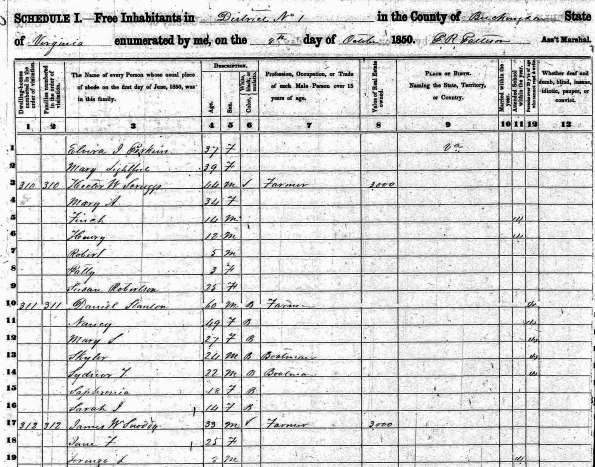 SCHEDULE I. — Free Inhabitants in District No 1 in the County of Buckingham State
of Virginia enumerated by me, on the 9th day of Octobr 1850. Ass't Marshal.
DESCRIPTION.
Dwelling-houses numbered in the order of visitation.
Families numbered in the order of visitation.
The Name of every Person whose usual place of abode on the first day of June, 1850, was in this family.
Age.
Sex.
Color, White, black, or mulatto.
Profession, Occupation, or Trade of each Male Person over 15 years of age.
Value of Real Estate owned.
PLACE OF BIRTH. Naming the State, Territory, or Country.
Married within the year.
Attended School within the year.
Persons over 20 y'rs of age who cannot read & write.
Whether deaf and dumb, blind, insane, idiotic, pauper, or convict.
1 2 3 4 5 6 7 8 9 10 11 12 13
1 Elvira J 37 F Va
2 Mary Lightfoot 39 F
3 310 310 W Scruggs 44 M Farmer 3000
4 Mary A 34 F
5 Finch 14 M
6 Henry 12 M
7 Robert 5 M
8 Patty 3 F
9 Susan Robertson 25 F
10 311 311 Daniel Stanton 60 M B Farmer
11 Nancy 49 F B
12 Mary S 27 F B
13 Skyler 24 M B Boatman
14 Sydnor T 22 M B Boatma
15 Saphronia 18 F B
16 Sarah J 14 F B
17 312 312 James W 33 M Farmer 3000
18 Jane F 25 F
19 2 M